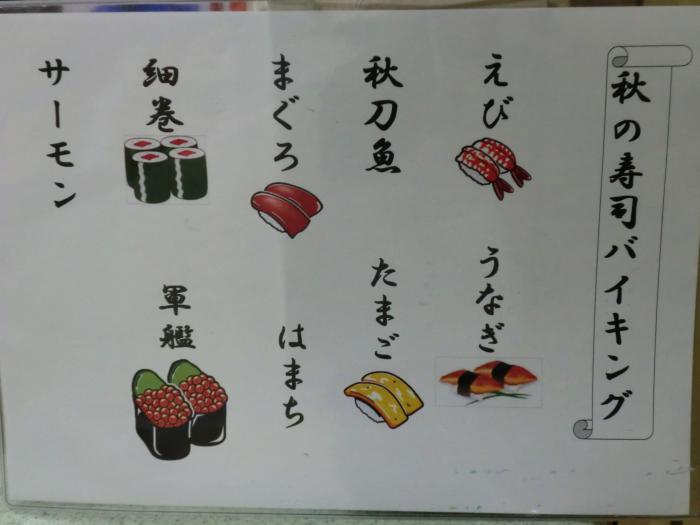 秋の寿司バイキング
えび
うなぎ
秋刀魚
たまご
まぐろ
はまち
細巻
軍艦
サーモン